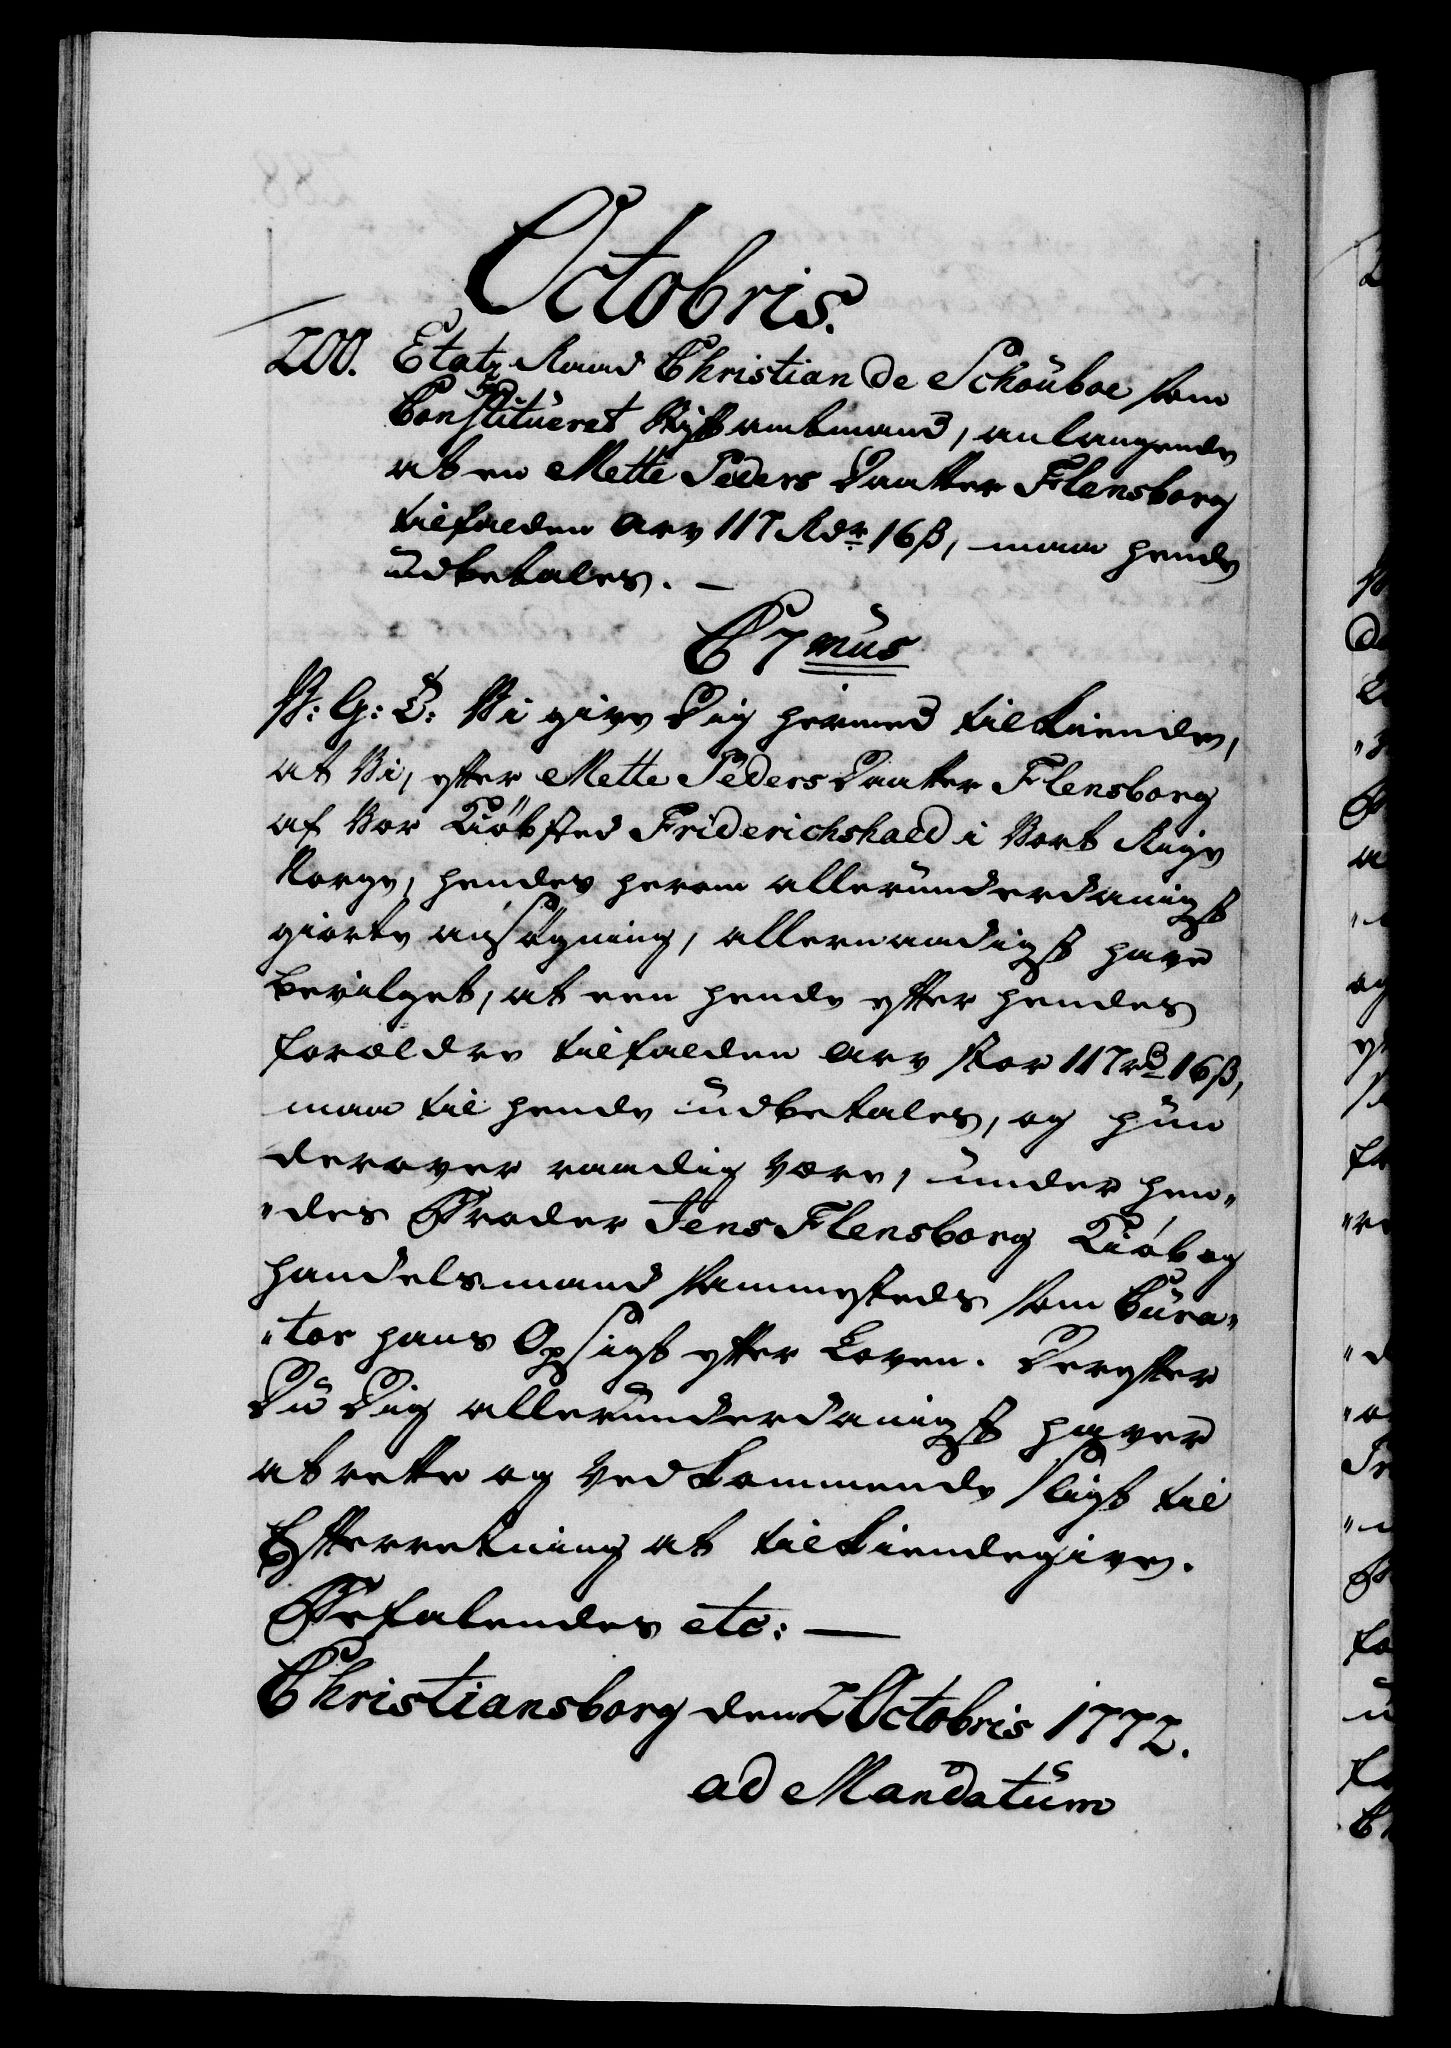 Octobris.
200. Etatz Raad Christian de Schouboe som
Constitueret Stiftamtmand, anlangende
at en Mette Peders Daatter Flensborg
tilfalden Arv 117 Rdr 16 ß, maa hende
udbetales. —
C 7 mus
P: G: T: Vi give Dig hermed tilkiende,
at Vi, efter Mette Peders Daatter Flensborg
af Vor Kiöbsted Friderichshald i Vort Rige
Norge, hendes herom allerunderdanigst
giorte ansögning, allernaadigst have
bevilget, at een hende efter hendes
forældre tilfalden Arv stor 117 rd 16 ß,
maa til hende udbetales, og hun
derover raadig være, under hen„
„des Broder Jens Flensborg Kiöb og
handelsmand sammesteds som Cura„
„tor hans Opsigt efter Loven. Derefter
Du Dig allerunderdanigst haver
at rette og Vedkommende sligt til
Efterretning at tilkiendegive.
Befalendes etc: —
Christiansborg den 2 Octobris 1772.
ad Mandatum